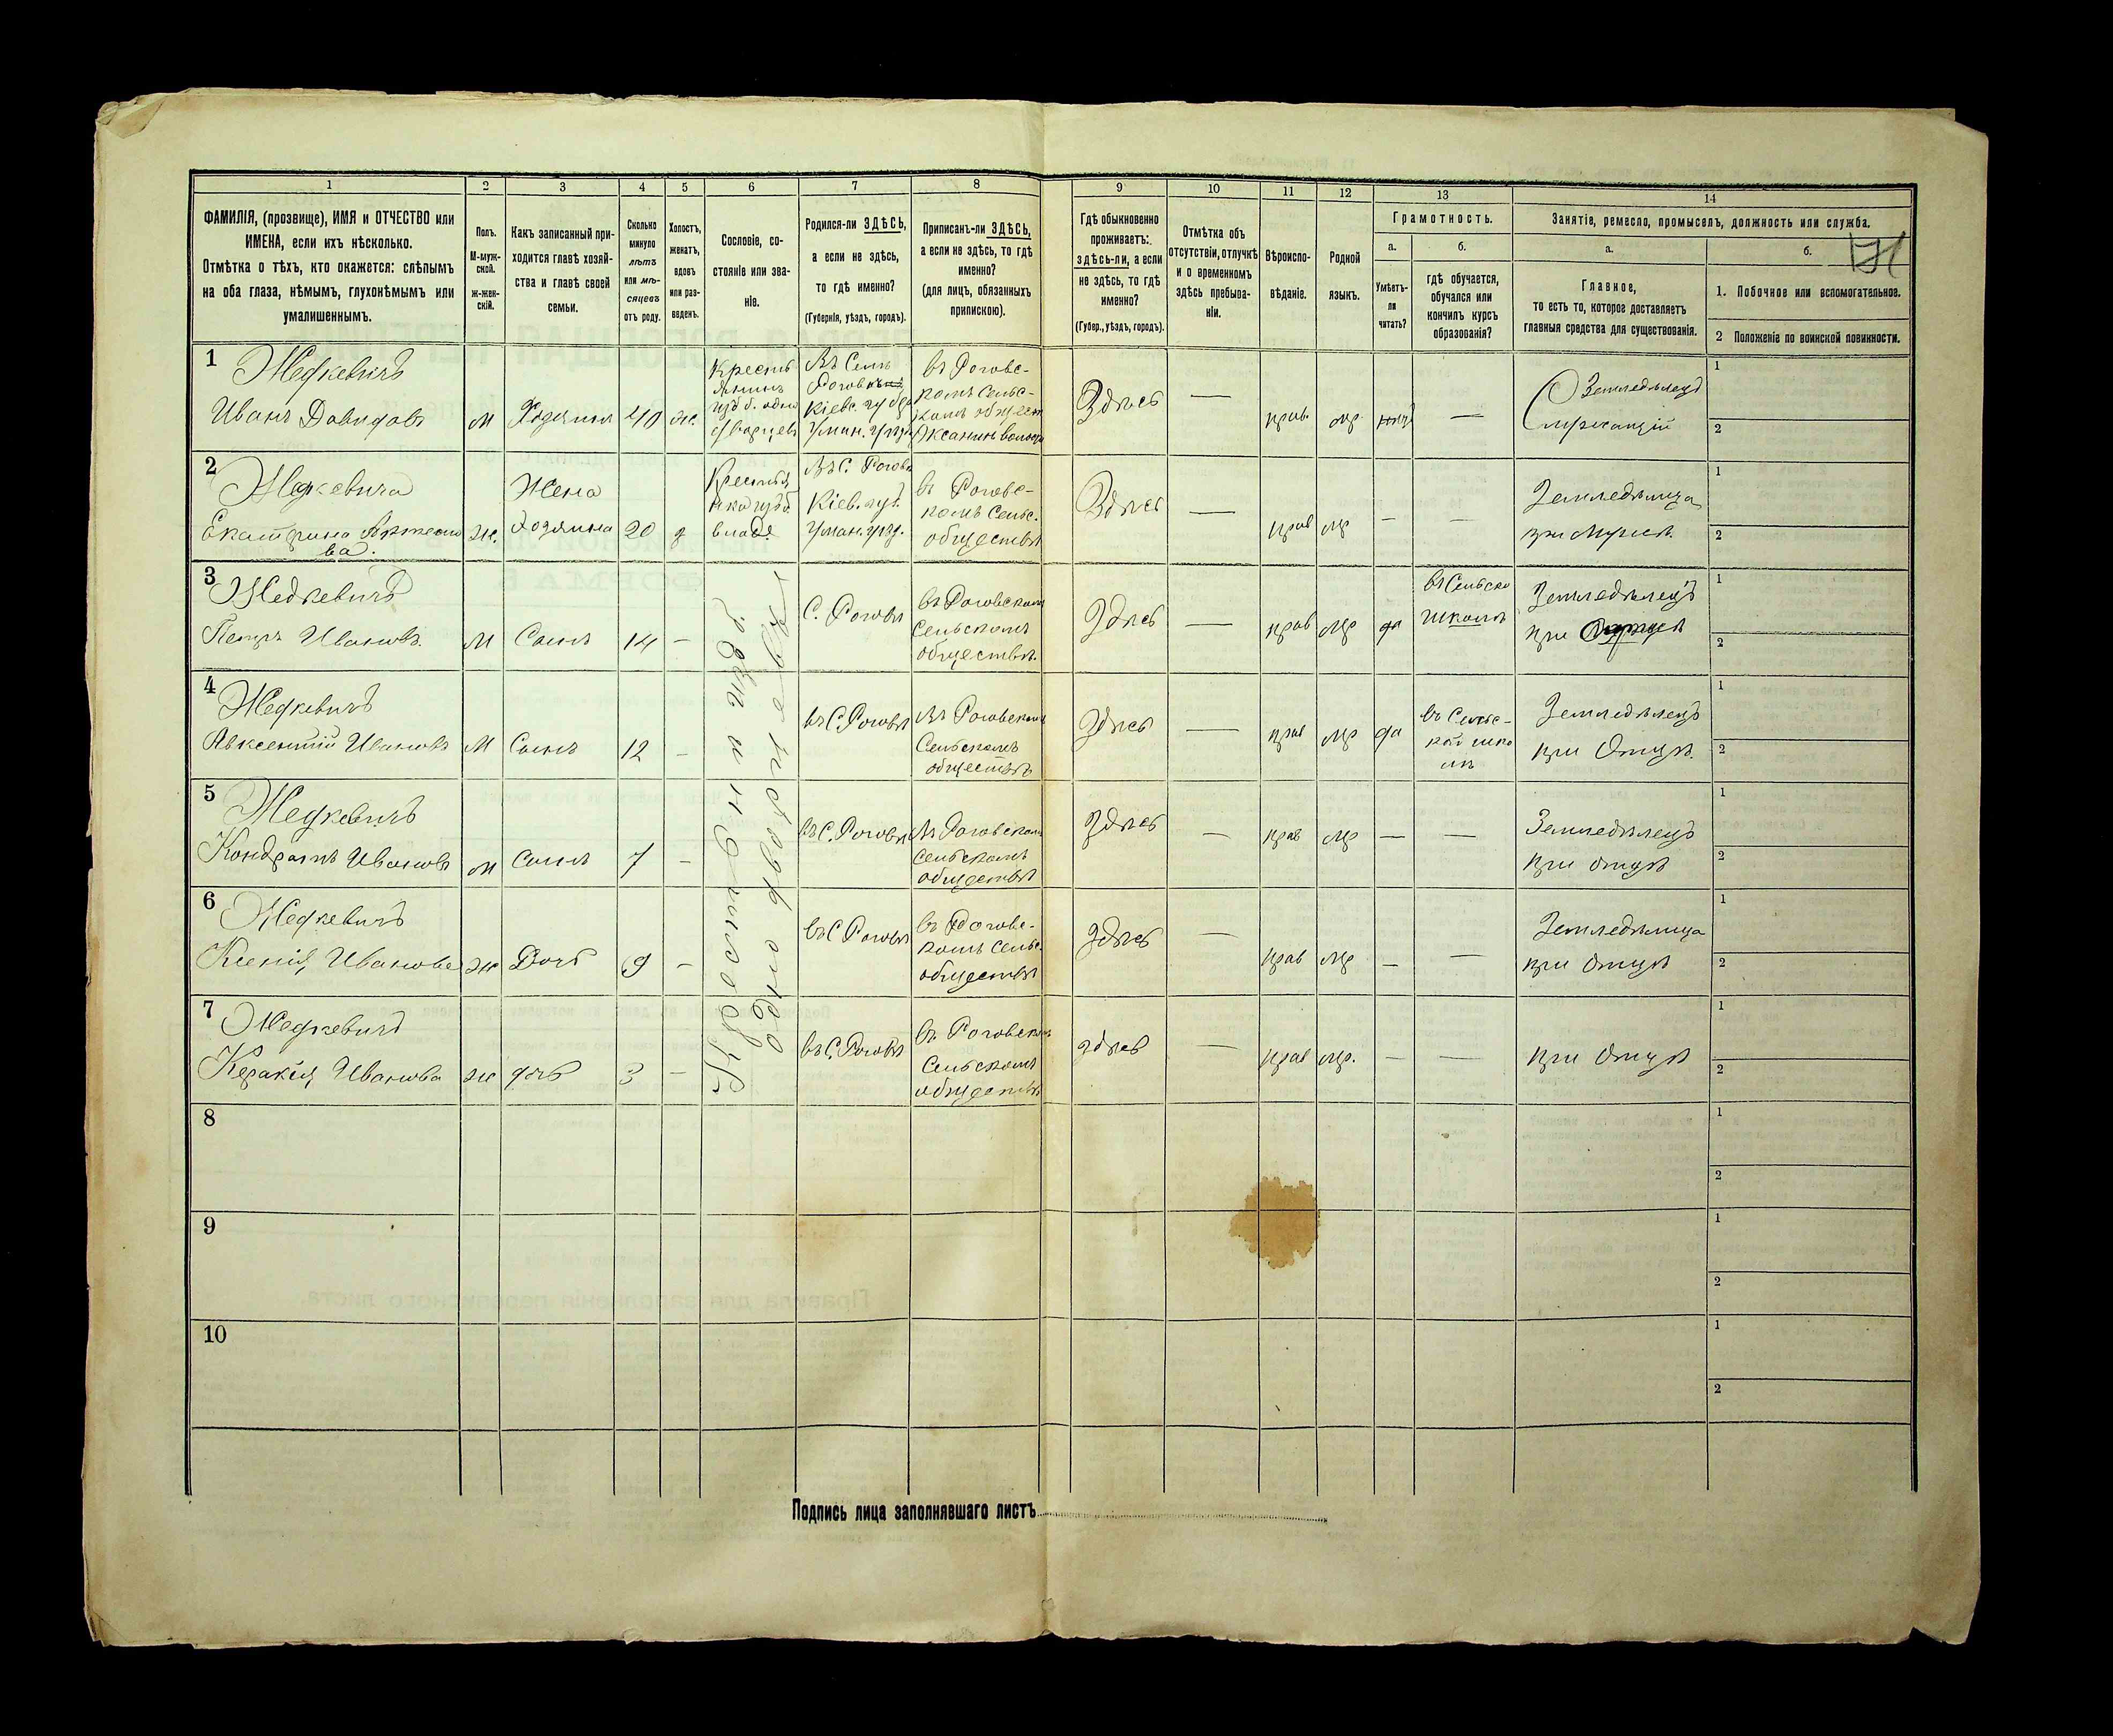 1 2 3 4 5 6 7 8 9 10 11 12 13 14
ФАМИЛІЯ, (прозвище), ИМЯ и ОТЧЕСТВО или
ИМЕНА, если ихъ нѣсколько.
Отмѣтка о тѣхъ, кто окажется: слѣпымъ
на оба глаза, нѣмымъ, глухонѣмымъ или
умалишеннымъ.
Полъ.
М-муж-
ской.
ж-жен-
скій.
Какъ записанный при-
ходится главѣ хозяй-
ства и главѣ своей
семьи.
Сколько
минуло
лѣтъ
или мѣ-
сяцевъ
отъ роду.
Холостъ,
женатъ,
вдовъ
или раз-
веденъ.
Сословіе, со-
стояніе или зва-
ніе.
Родился-ли ЗДѢСЬ,
а если не здѣсь,
то гдѣ именно?
(Губернія, уѣздъ, городъ).
Приписанъ-ли ЗДѢСЬ,
а если не здѣсь, то гдѣ
именно?
(для лицъ, обязанныхъ
припискою).
Гдѣ обыкновенно
проживаетъ:
здѣсь-ли, а если
не здѣсь, то гдѣ
именно?
(Губер., уѣздъ, городъ).
Отмѣтка объ
отсутствіи, отлучкѣ
и о временномъ
здѣсь пребыва-
ніи.
Вѣроиспо-
вѣданіе.
Родной
языкъ.
Грамотность.
а.
Умѣетъ-
ли
читать?
б.
гдѣ обучается,
обучался или
кончилъ курсъ
образованія?
Занятіе, ремесло, промыселъ, должность или служба.
а.
Главное,
то есть то, которое доставляетъ
главныя средства для существованія.
б.
1. Побочное или вспомогательное.
2 Положеніе по воинской повинности.
1
Жедкевичъ
Иванъ Давидовъ
м
Хозяинъ
40
ж.
Въ Селѣ
Кіевс. губер
Уман. уѣзд
въ Роговс-
комъ Сельс-
комъ общест
Здѣсь
—
прав.
мр
—
Земледѣлецъ
1
2
2
Жедкевича
Екатерина
ва.
ж.
Жена
Хозяина
20
въ С. Роговѣ
Кіев. губ.
Уман. уѣзд.
въ Роговс-
комъ Сельс.
обществѣ
Здѣсь
—
прав
мр
—
—
Земледѣлица
при мужѣ.
1
2
3
Жедкевичъ
Петръ Ивановъ.
М
Сынъ
14
—
С. Роговѣ
въ Роговскомъ
Сельскомъ
обществѣ.
Здѣсь
—
прав
мр
да
въ Сельско
школѣ
Земледѣлецъ
при
1
2
4
Жедкевичъ
Авксентій Ивановъ
М
Сынъ
12
—
въ С. Роговѣ
Въ Роговскомъ
Сельскомъ
обществѣ
Здѣсь
—
прав
мр
да
въ Сельс-
кой шко
лѣ
Земледѣлецъ
при Отцѣ.
1
2
5
Жедкевичъ
Кондратъ Ивановъ
м
Сынъ
7
—
въ С. Роговѣ
Въ Роговскомъ
Сельскомъ
обществѣ
Здѣсь
—
прав
мр
—
—
Земледѣлецъ
при отцѣ
1
2
6
Жедкевичъ
Ксенія Иванова
ж
Дочь
9
—
въ С. Роговѣ
въ Роговс-
комъ Сельс.
обществѣ
Здѣсь
—
прав
мр
—
—
Земледѣлица
при отцѣ
1
2
7
Жедкевичъ
Иванова
ж
дочь
3
—
въ С. Роговѣ
въ Роговскомъ
Сельскомъ
обществѣ
здѣсь
—
прав
мр.
—
—
при Отцѣ
1
2
8
1
2
9
1
2
10
1
2
Подпись лица заполнявшаго листъ